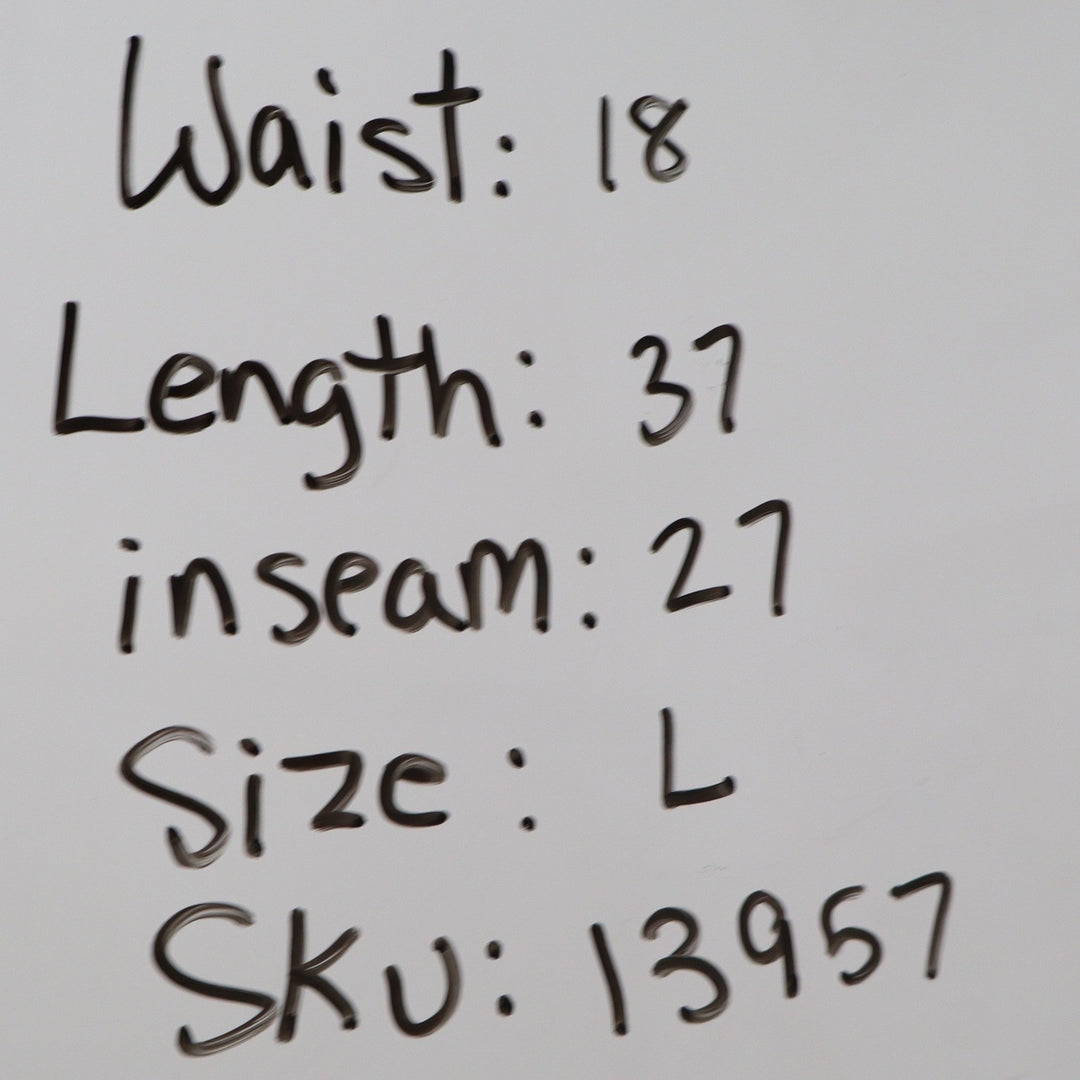 Waist: 18
Length: 37
inseam: 27
Size: L
SKU: 13957